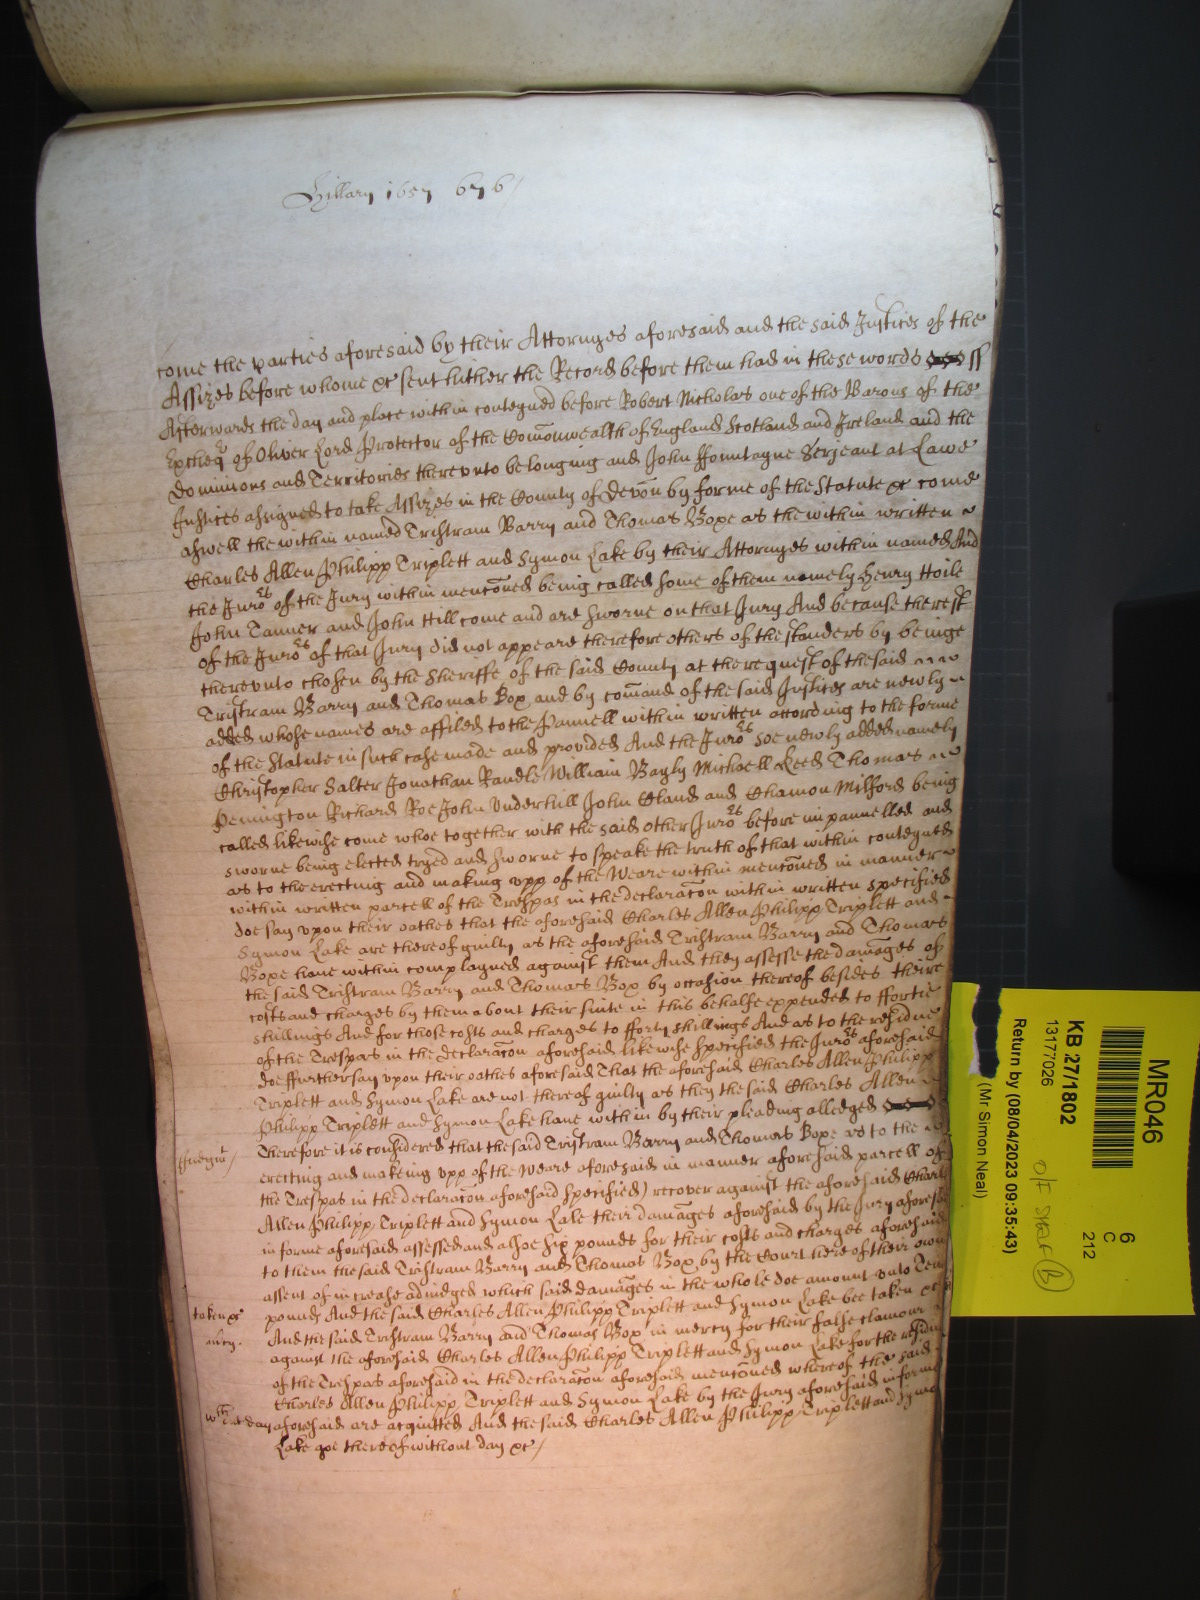 Hillary 1657 676/
come the parties aforesaid by their Attornyes aforesaid and the said Justices of the
Assizes before whome &c sent hither the Record before them had in these words ss
Afterwards the day and place within conteyned before Robert Nicholas one of the Barons of the
Excheqr of Oliver Lord Protector of the Com̄onwealth of England Scotland and Ireland and the
Dominions and Territories therevnto belonging and John Ffountayne Serjeant at Lawe
Justices assigned to take Assizes in the County of Devon by forme of the Statute &c come
aswell the within named Tristram Barry and Thomas Boxe as the within written
Charles Allen Philipp Triplett and Symon Lake by their Attornyes within named And
the Juro:rs of the Jury within menc̄oned being called some of them namely Henry Hoile
John Tanner and John Hill come and are sworne on that Jury And because the rest
of the Juro:rs of that Jury did not appeare therefore others of the standers by beinge
therevnto chosen by the Sheriffe of the said County at the request of the said
Tristram Barry and Thomas Box and by com̄and of the said Justices are newly
added whose names are affiled to the Pannell within written according to the forme
of the Statute in such case made and provided And the Juro:rs soe newly added namely
Christopher Salter Jonathan Randle William Bayly Michaell Reed Thomas
Penington Richard Roe John Vnderhill John Eland and Chamon Milford being
called likewise come whoe together with the said other Juro:rs before impannelled and
sworne being elected tryed and sworne to speake the truth of that within conteyned
as to the erecting and making vpp of the Weare within menc̄oned in manner
within written parcell of the Trespas in the declarac̄on within written specified
doe say vpon their oathes that the aforesaid Charles Allen Philipp Triplett and
Symon Lake are thereof guilty as the aforesaid Tristram Barry and Thomas
Boxe haue within complayned against them And they assesse the damages of
the said Tristram Barry and Thomas Box by occasion thereof besides theire
costs and charges by them about their suite in this behalfe expended to ffortie
shillings And for those costs and charges to fforty shillings And as to the residue
of the Trespas in the declarac̄on aforesaid likewise specified the Juro:rs aforesaid
doe ffurther say vpon their oathes aforesaid That the aforesaid Charles Allen Philipp
Triplett and Symon Lake are not thereof guilty as they the said Charles Allen
Philipp Triplett and Symon Lake haue within by their pleading alledged
Judgmt/ Therefore it is considered that the said Tristram Barry and Thomas Boxe as to the
erecting and makeing vpp of the Weare aforesaid in manner aforesaid parcell of
the Trespas in the declarac̄on aforesaid specified) recover against the aforesaid Charles
Allen Philipp Triplett and Symon Lake their damages aforesaid by the Jury aforesaid
in forme aforesaid assessed and alsoe six pounds for their costs and charges aforesaid
to them the said Tristram Barry and Thomas Box by the Court here of their own
assent of increase adiudged which said damages in the whole doe amount vnto Tenn
taken &c pounds And the said Charles Allen Philipp Triplett and Symon Lake bee taken &c
mercy. And the said Tristram Barry and Thomas Box in mercy for their false clamour
against the aforesaid Charles Allen Philipp Triplett and Symon Lake for the residue
of the Trespas aforesaid in the declarac̄on aforesaid menc̄oned whereof the said
Charles Allen Philipp Triplett and Symon Lake by the Jury aforesaid in forme
wthout day aforesaid are acquitted And the said Charles Allen Philipp Triplett and Symon
Lake goe thereof without day &c/
MR046
6
C
212
KB 27/1802
13177026
O/F SHELF (B)
Return by (08/04/2023 09:35:43)
(Mr Simon Neal)